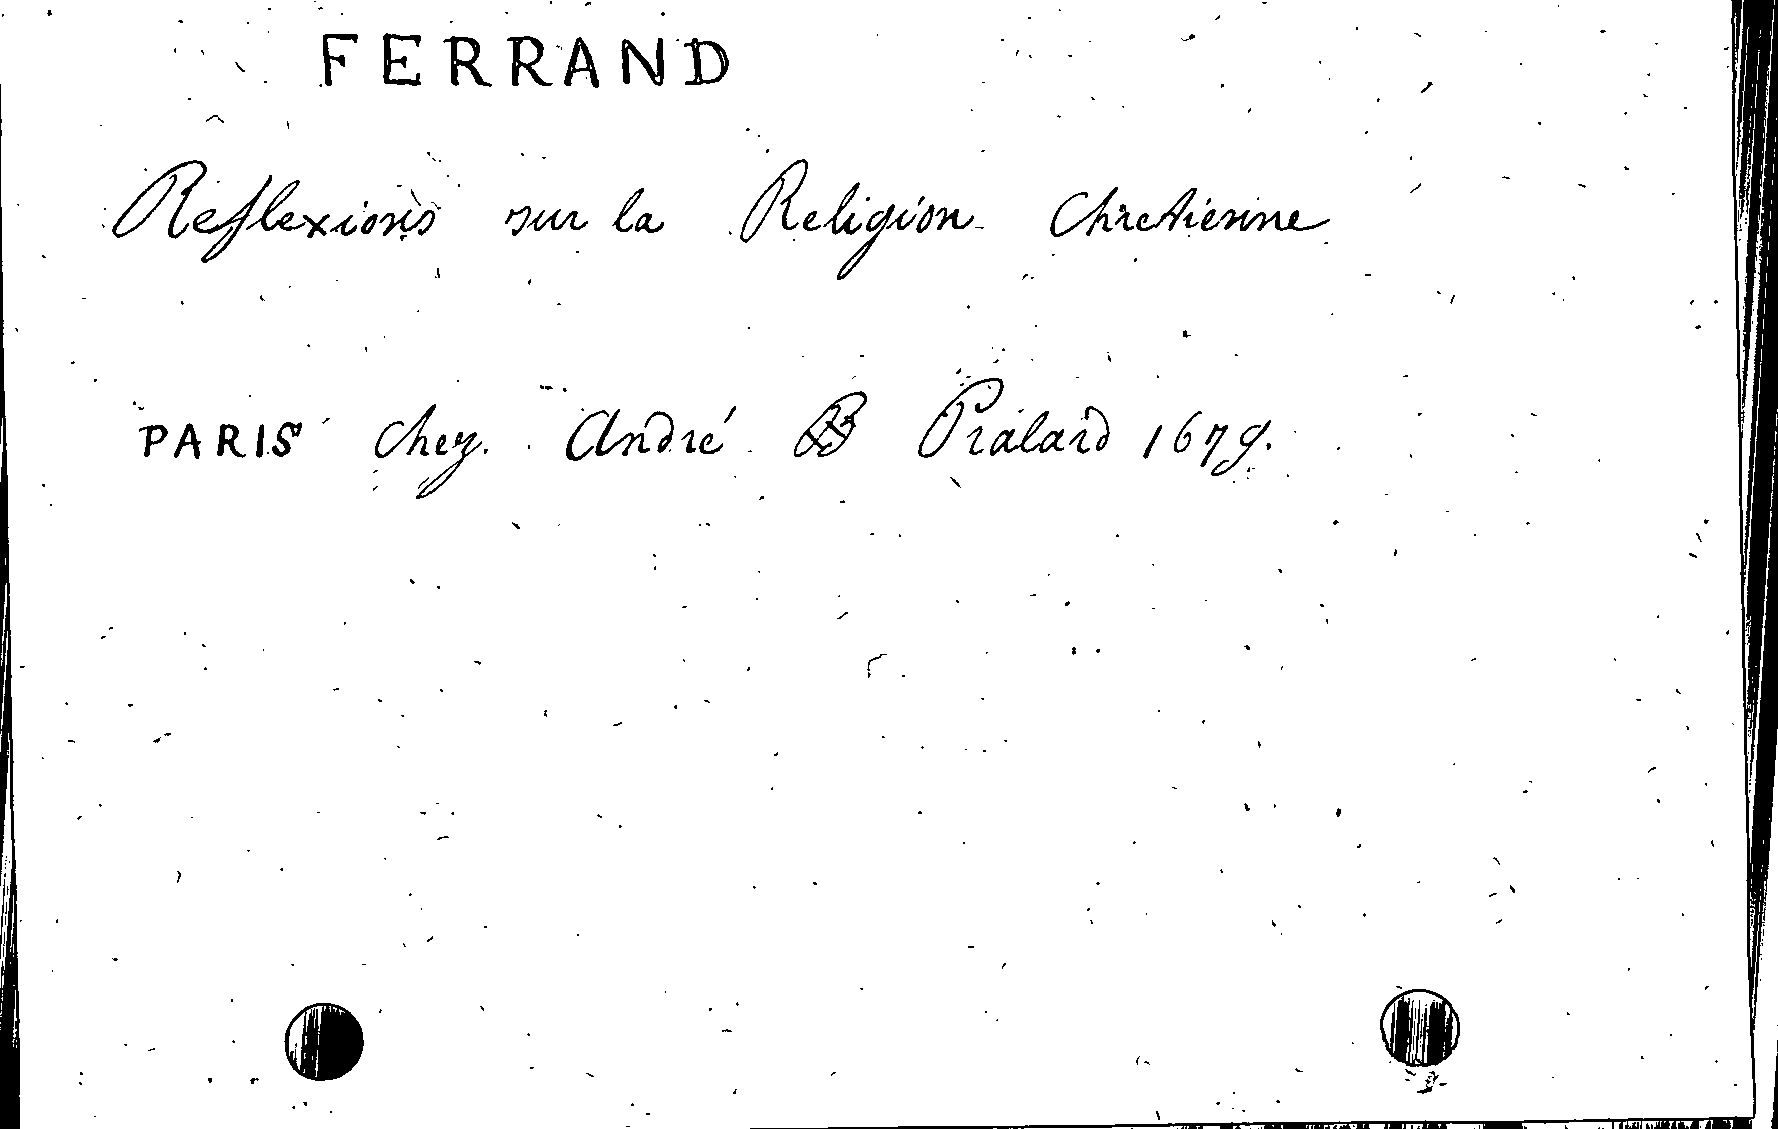 FERRAND
Reflexions sur la Religion Chretienne
PARIS chez André Pralard 1679.